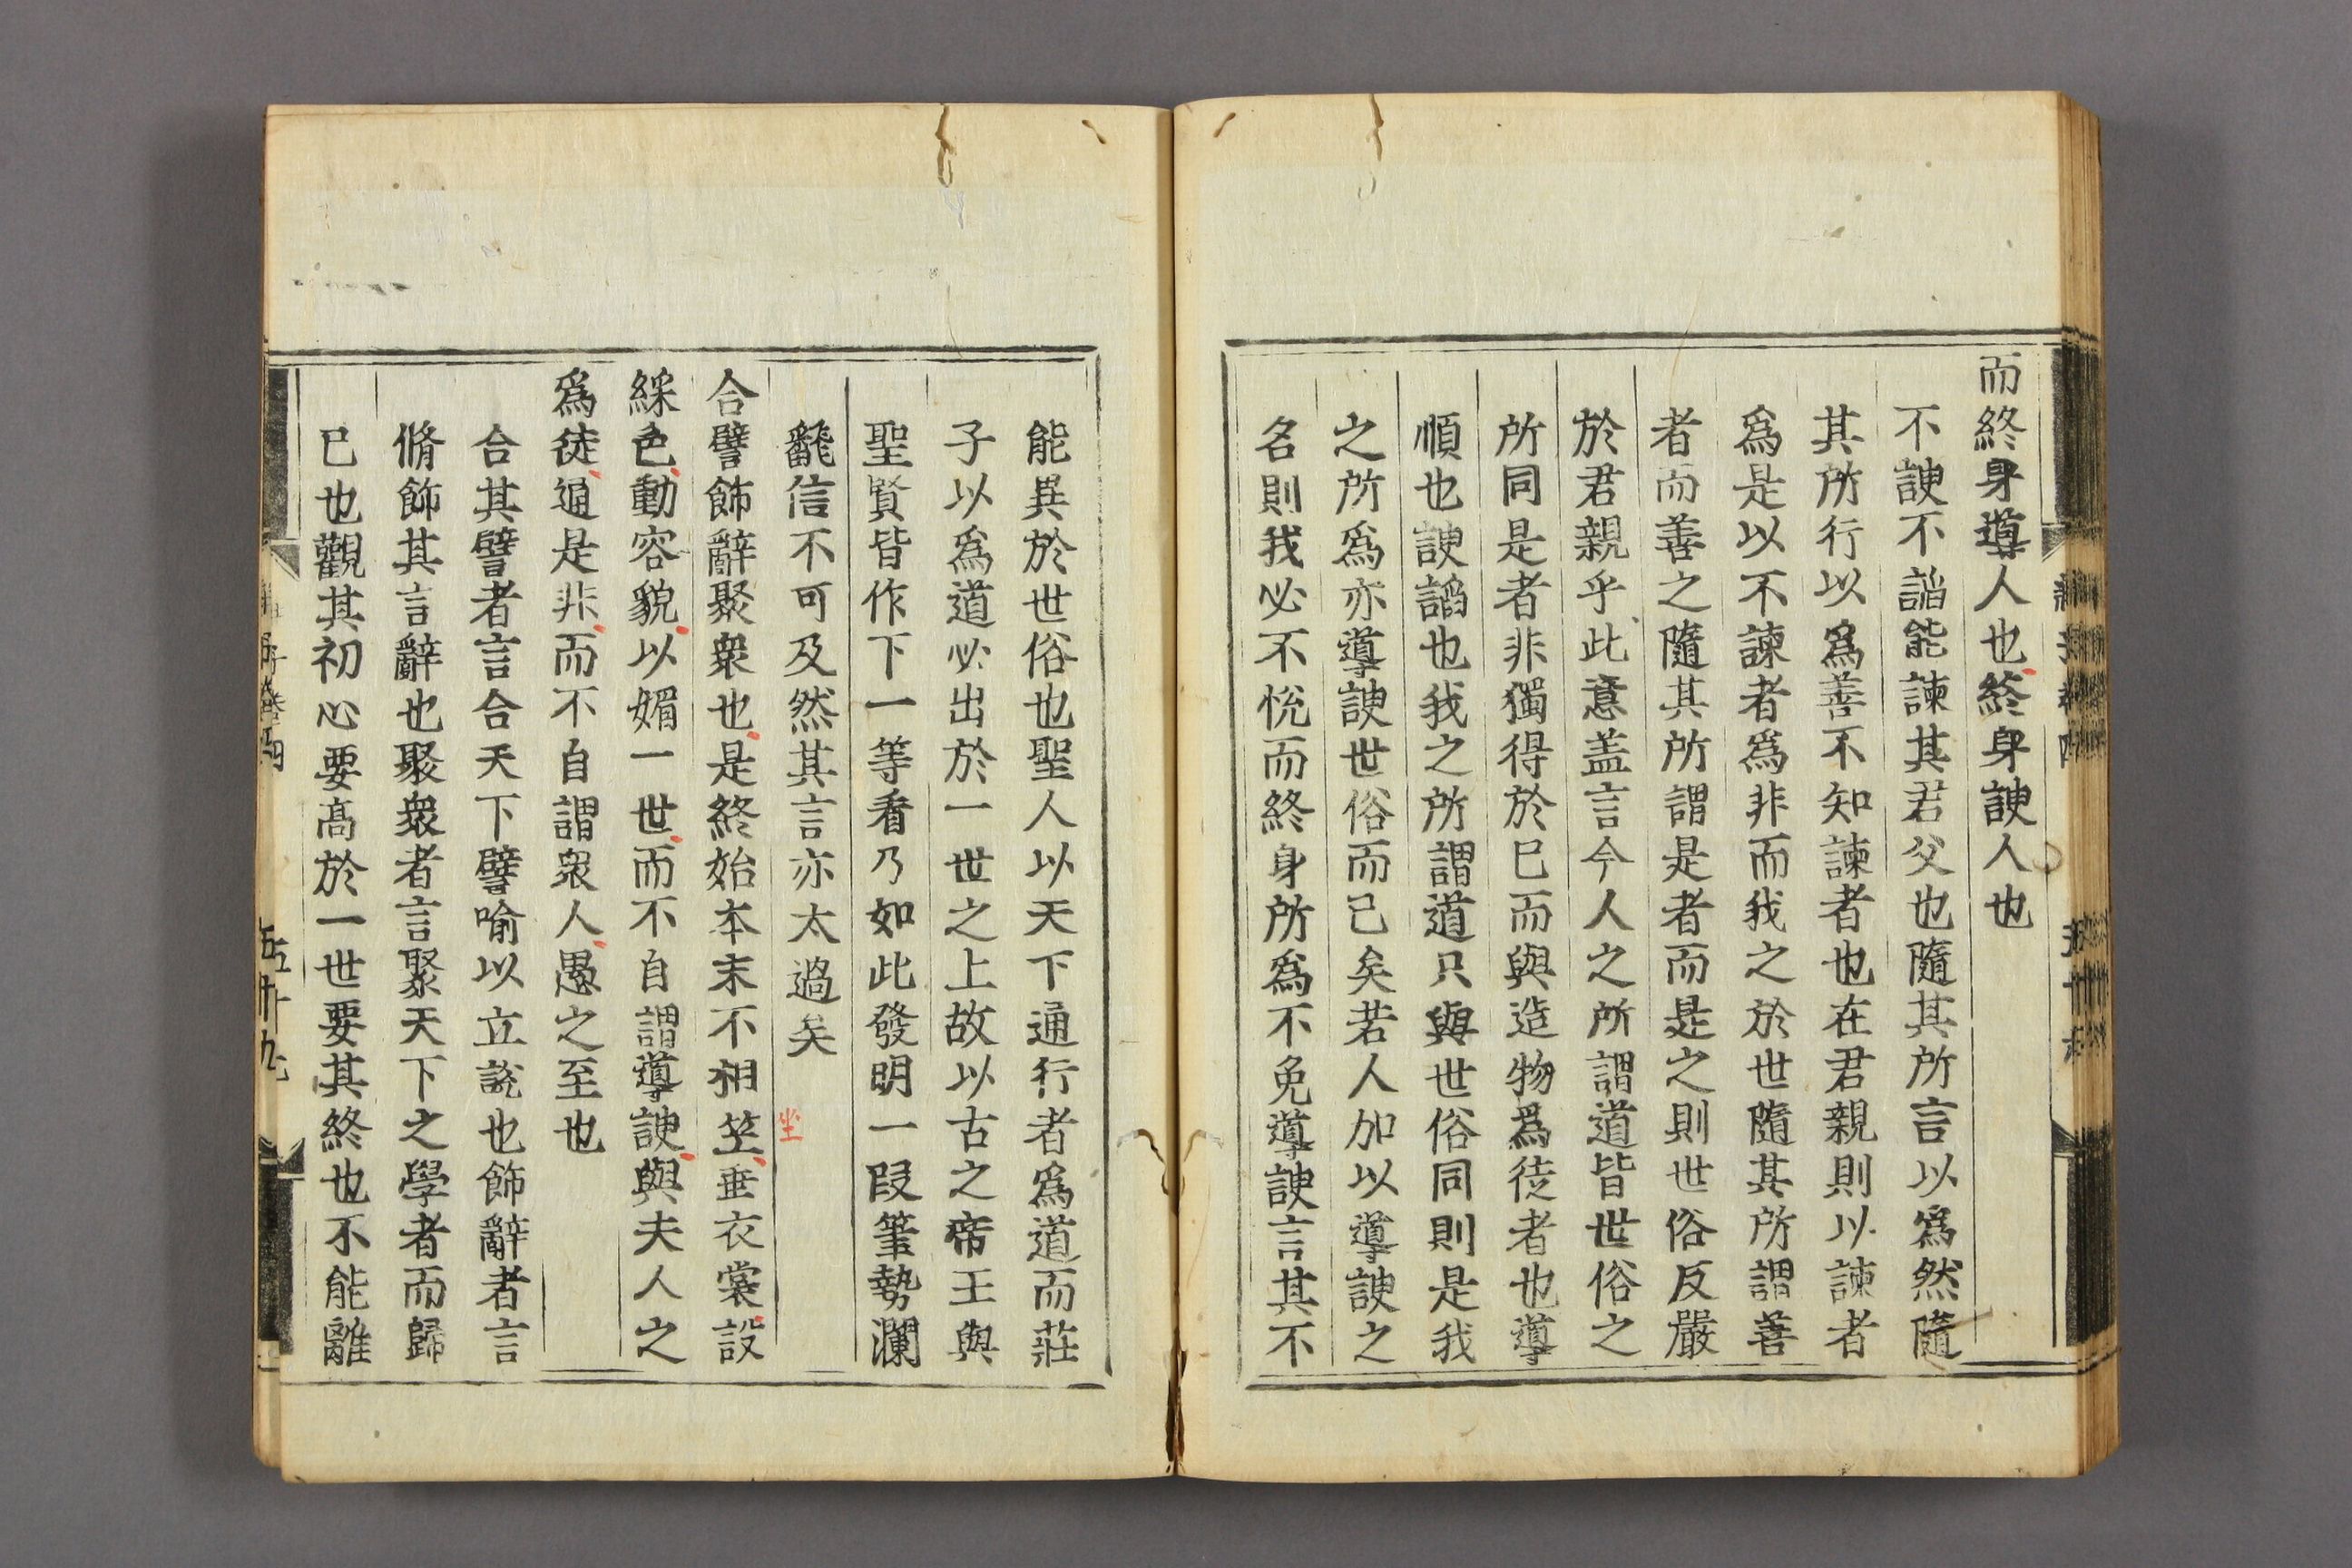 而終身導人也終身諛人也
不諛不諂能諫其君父也隨其所言以爲然隨
其所行以爲善不知諫者也在君親則以諫者
爲是以不諫者爲非而我之於世隨其所謂善
者而善之隨其所謂是者而是之則世俗反嚴
於君親乎此意盖言今人之所謂道皆世俗之
所同是者非獨得於已而與造物爲徒者也導
順也諛謟也我之所謂道只與世俗同則是我
之所爲亦導諛世俗而已矣若人加以導諛之
名則我必不悅而終身所爲不免導諛言其不
能異於世俗也聖人以天下通行者爲道而莊
子以爲道必出於一世之上故以古之帝王與
聖賢皆作下一等看乃如此發明一段筆勢瀾
飜信不可及然其言亦太過矣
合譬飾辭聚衆也是終始本末不相坐垂衣裳設
坐
綵色動容貌以媚一世而不自謂導諛與夫人之
爲徒通是非而不自謂衆人愚之至也
合其譬者言合天下譬喻以立說也飾辭者言
脩飾其言辭也聚衆者言聚天下之學者而歸
已也觀其初心要高於一世要其終也不能離
五十九